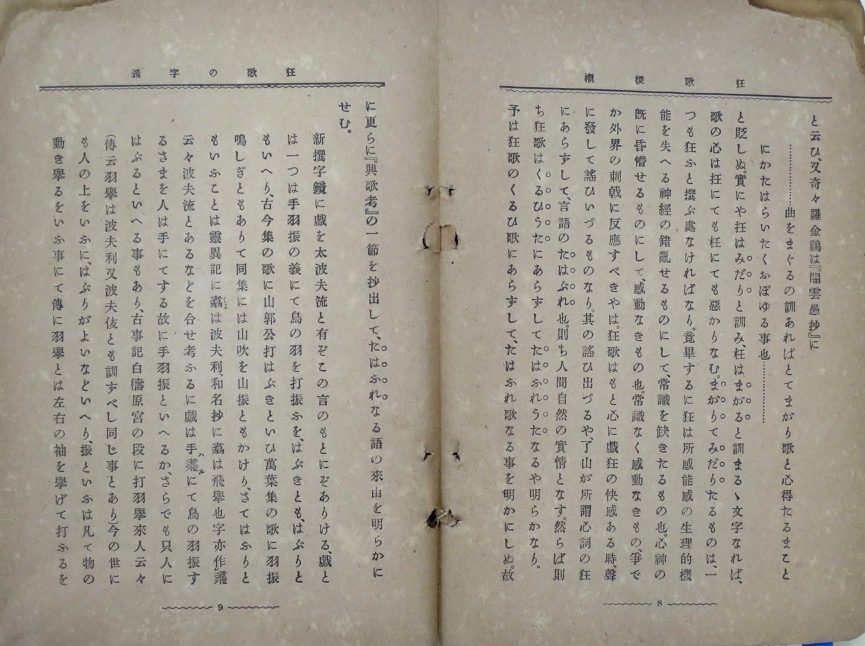 狂歌概
と云ひ又奇々羅金鶏は『闇雲愚抄』に
…………曲をまぐるの訓あればとてまがり歌と心得たるまこと
にかたはらいたくおぼゆる事也…………
と貶しぬ。實にや狂はみだりと訓み、枉はまがると訓まるゝ文字なれば、
歌の心は狂にても枉にても惡かりなむ。まがりてみだりたるものは、一
つも狂ふと撰ぶ處なければなり。竟畢するに狂は所感能感の生理的機
能を失へる神經の錯亂せるものにして、常識を缺きたるもの也。心神の
旣に昏憯せるものにして感動なきもの也。常識なく感動なきもの、爭で
か外界の刺戟に反應すべきやは。狂歌はもと心に戯狂の快感ある時、聲
に發して謠ひいづるものなり。其の謠ひ出づるや、了山が所謂心詞の狂
にあらずして、言語のたはぶれ也。則ち人間自然の實情となす。然らば則
ち狂歌はくるひうたにあらずしてたはふれうたなるや明らかなり。
予は狂歌のくるひ歌にあらずして、たはふれ歌なる事を明かにしぬ。故
8
狂歌の字義
に更らに『興歌考』の一節を抄出して、たはふれなる語の來由を明らかに
せむ。
新撰字鏡に戯を太波夫流と有ぞこの言のもとにぞありける。戯と
は一つは手羽振の義にて鳥の羽を打振ふを、はぶきとも、はぶりと
もいへり、古今集の歌に山郭公打はぶきといひ萬葉集の歌に羽振
鳴しぎともありて同集には山吹を山振ともかけり、さてはふりと
もいふことは靈異記に翥は波夫利和名抄に翥は飛擧也字亦作
云々波夫流とあるなどを合せ考ふるに戯は手翥にて鳥の羽振す
るさまを人は手にてする故に手羽振といへるか、さらでも只人に
はぶるといへる事もあり、古事記白檮原宮の段に打羽擧來人云々
(傳云羽擧は波夫利又波夫伎とも訓ずべし同じ事とあり)今の世に
も人の上をいふに、はぶりがよいなどいへり、振といふは凡て物の
動き擧るをいふ事にて傳に羽擧とは左右の袖を擧げて打ふるを
9